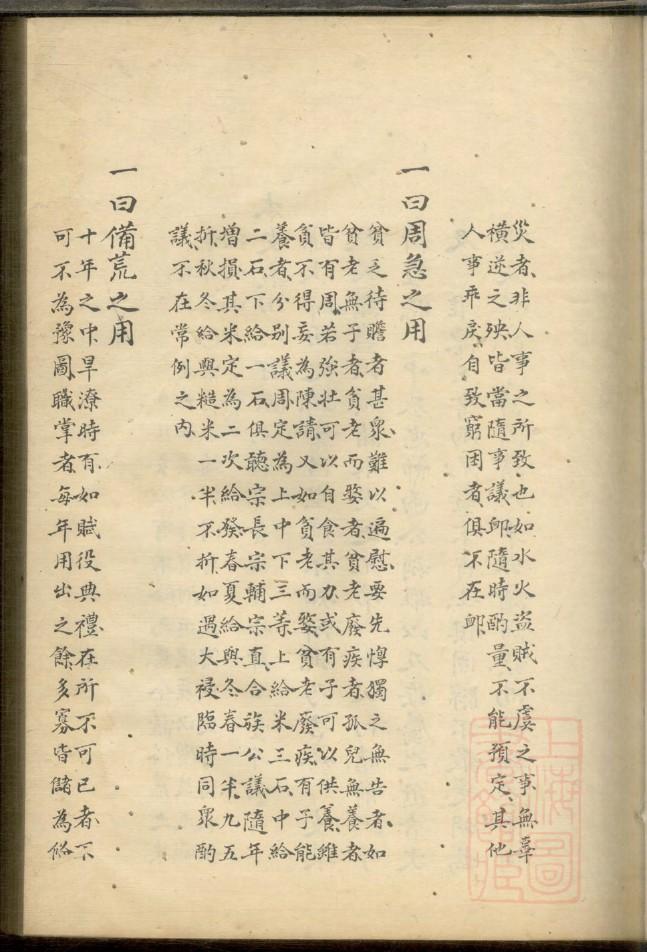 災者非人事之所致也如水火盜賊不虞之事無辜
橫逆之殃皆當隨事議卹隨時酌量不能預定其他
人事乖戾自致窮困者俱不在卹
一曰周急之用
貧乏待贍者甚衆難以遍慰要先惸獨之無告者如
貧老無子者貧老而婺者貧老廢疾者孤兒無養者
皆有周若強壯可以自食其力或有子可以供養雖
貧不得妄為陳請又如貧老而婺貧老廢疾有子能
養者分別議周定為上中下三等上給米三石中給
二石下給一石俱聽宗長宗輔宗直合族公議隨年
增損其米定為二次給發春夏給與冬春一半九五
折秋冬給與糙米一半不折如遇大祲臨時同衆酌
議不在常例之內
一曰備荒之用
十年之中旱潦時有如賦役典禮在所不可已者下
可不為豫圖職掌者每年用出之餘多寡皆儲為俗
上海圖